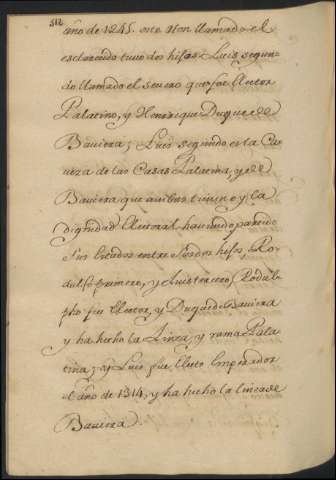 512
año de 1245. otto llamado el
esclarecido tuvo dos hijos Luis segun-
do llamado el severo que fue Elector
Palatino, y Henrrique Duque de
Baviera; Luis segundo es la Ca-
veza de las Casas Palatina, y de
Baviera que ambas tienen y la
Dignidad Electoral haviendo partido
sus Estados entre sus dos hijos, Ro-
dulfo primero, y Luis tercero, Rodul-
pho fue Elector, y Duque de Baviera
y ha hecho la Linea, y rama Pala-
tina; y Luis fue Electo Emperador
el año de 1314, y ha hecho la linea de
Baviera.